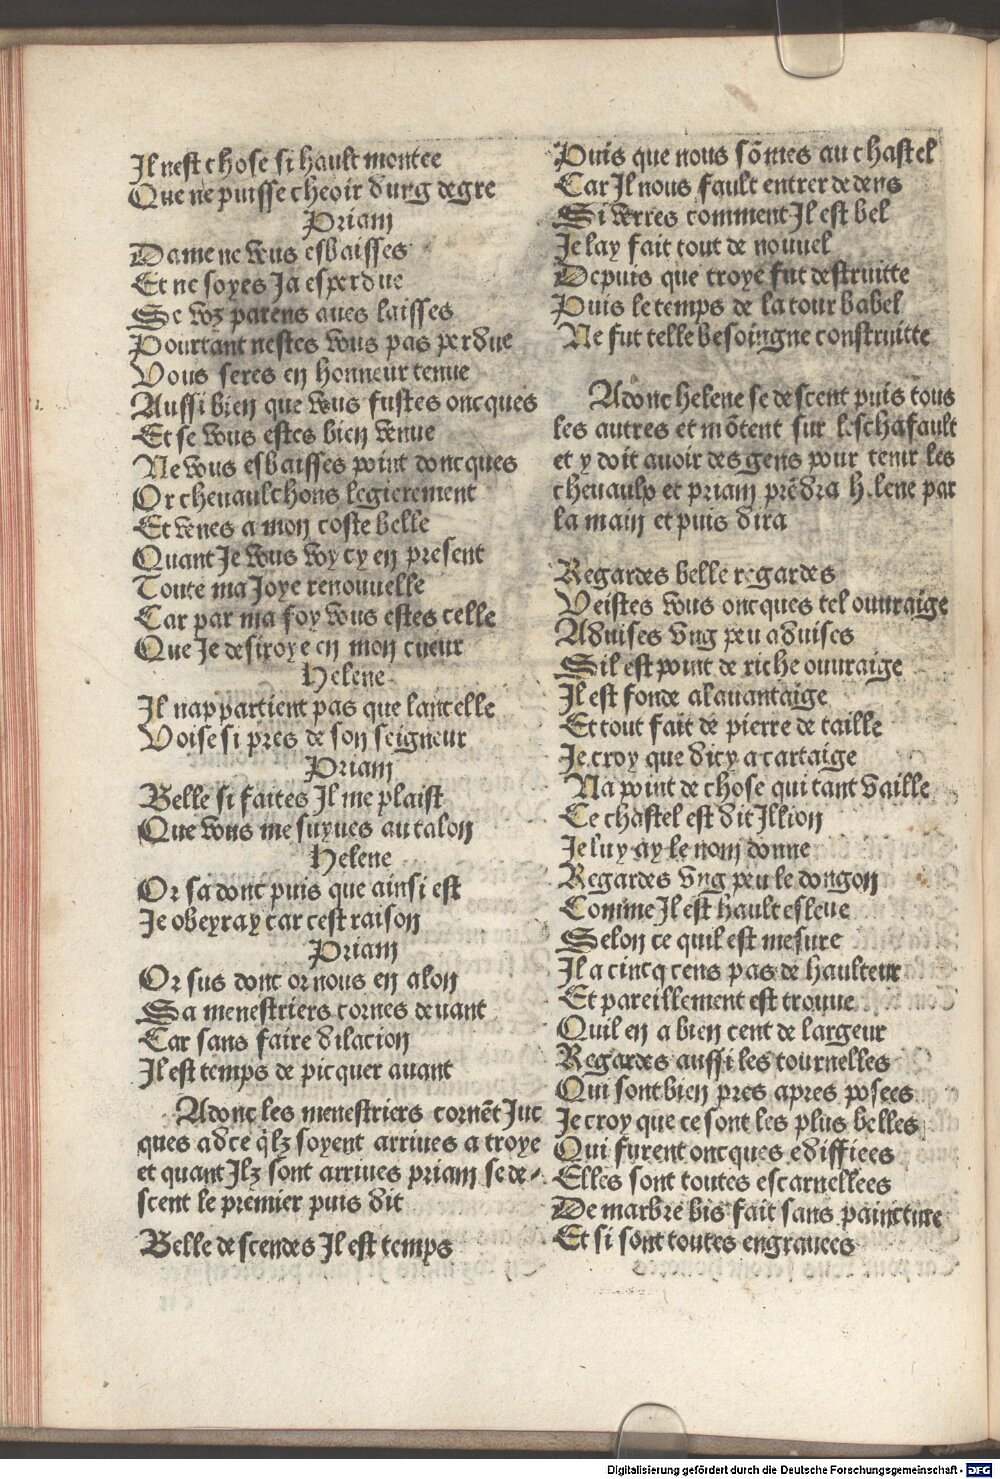 Il nest chose si hault montee
Que ne puisse cheoir dung degre
Priam
Dame ne vous esbaisses
Et ne soyes Ja esperdue
Se voz parens aues laisses
Pourtant nestes vous pas perdue
Vous seres en honneur tenue
Aussi bien que vous fustes oncques
Et se vous estes bien venue
Ne vous esbaisses point doncques
Or cheuaulchons legierement
Et venes a mon coste belle
Quant Je vous voy cy en present
Toute ma Joye renouuelle
Car par ma foy vous estes celle
Que Je desiroye en mon cueur
Helene
Il nappartient pas que lancelle
Voise si pres de son seigneur
Priam
Belle si faites Il me plaist
Que vous me suyues au talon
Helene
Or sa donc puis que ainsi est
Je obeyray car cest raison
Priam
Or sus donc or nous en alon
Sa menestriers cornes deuant
Car sans faire dilacion
Il est temps de picquer auant
Adonc les menestriers cornēt Juc
ques adce q̄lz soyent arriues a troye
et quant Ilz sont arriues priam se de⸗
scent le premier puis dit
Belle descendes Il est temps
Puis que nous sōmes au chastel
Car Il nous fault entrer dedens
Si verres comment Il est bel
Je lay fait tout de nouuel
Depuis que troye fut destruitte
Puis le temps de la tour babel
Ne fut telle besoingne construitte
Adonc helene se descent puis tous
les autres et mōtent sur leschafault
et y doit auoir des gens pour tenir les
cheuaulx et priam prēdra helene par
la main et puis dira
Regardes belle regardes
Veistes vous oncques tel ouuraige
Aduises vng peu aduises
Sil est point de riche ouuraige
Il est fonde alauantaige
Et tout fait de pierre de taille
Je croy que dicy a cartaige
Na point de chose qui tant vaille
Ce chastel est dit Illion
Je luy ay le nom donne
Regardes vng peu le dongon
Comme Il est hault esleue
Selon ce quil est mesure
Il a cincq cens pas de haulteur
Et pareillement est trouue
Quil en a bien cent de largeur
Regardes aussi les tournelles
Qui sont bien pres apres posees
Je croy que ce sont les plus belles
Qui furent oncques ediffiees
Elles sont toutes escarnellees
De marbre bis fait sans paincture
Et si sont toutes engrauees
Digitalisierung gefördert durch die Deutsche Forschungsgemeinschaft - DFG